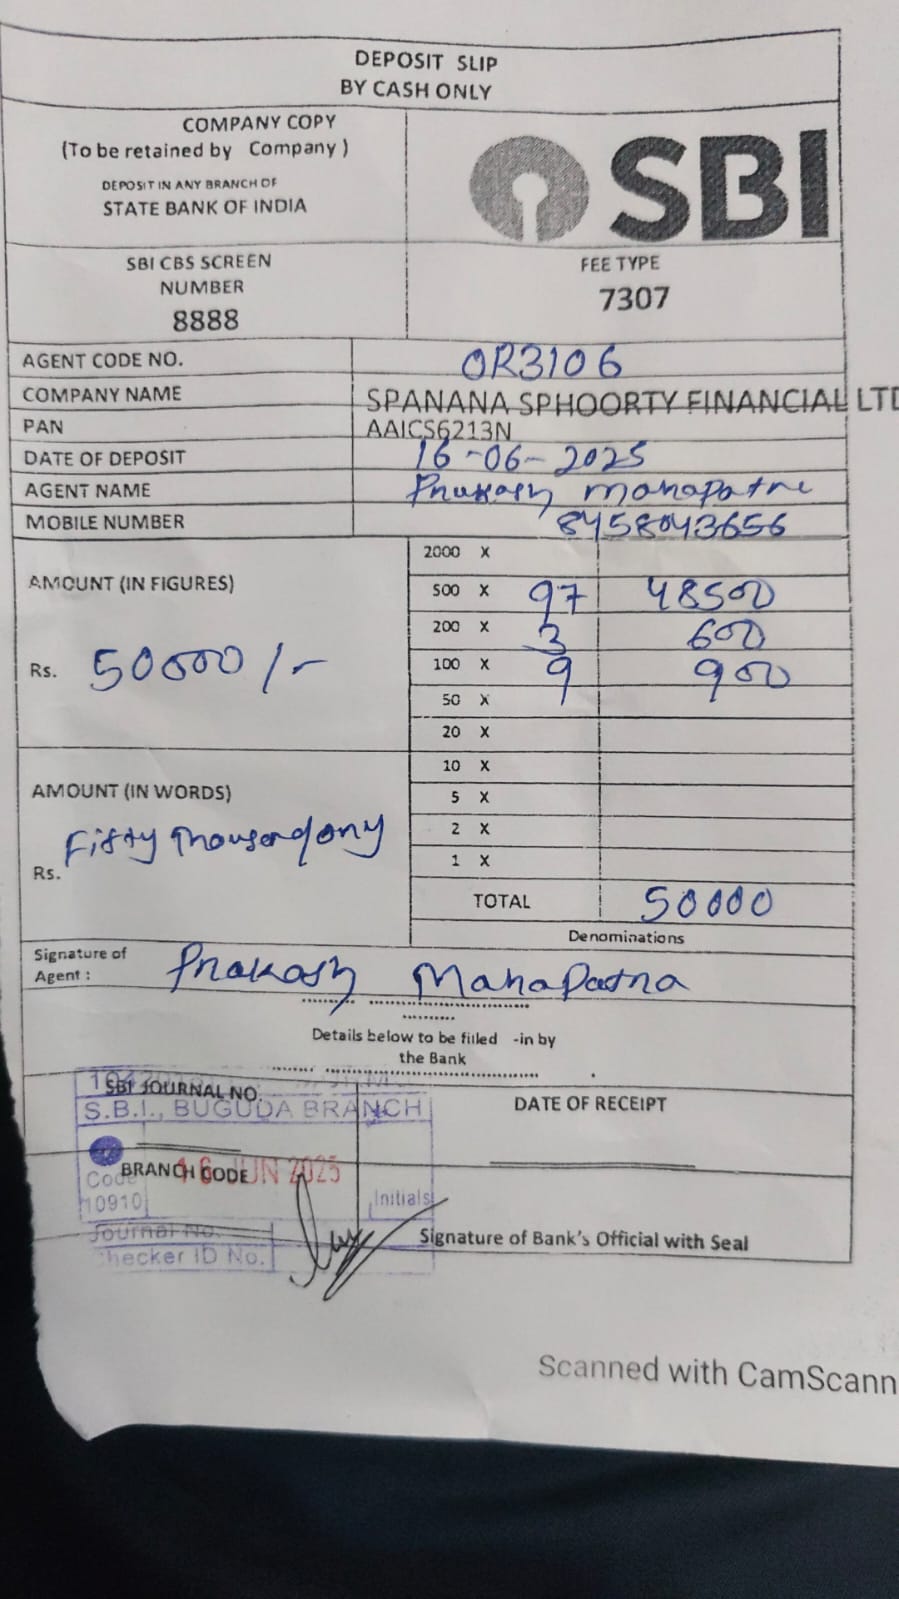 DEPOSIT SLIP
BY CASH ONLY
COMPANY COPY
(To be retained by Company )
DEPOSIT IN ANY BRANCH OF
STATE BANK OF INDIA
SBI
SBI CBS SCREEN
NUMBER
8888
FEE TYPE
7307
AGENT CODE NO. OR3106
COMPANY NAME SPANANA SPHOORTY FINANCIAL LTD
PAN AAICS6213N
DATE OF DEPOSIT 16-06-2025
AGENT NAME Prakash Mahapatra
MOBILE NUMBER 8458043656
AMOUNT (IN FIGURES)
Rs. 50000/-
2000 X
500 X 97 48500
200 X 3 600
100 X 9 900
50 X
20 X
10 X
5 X
2 X
1 X
TOTAL 50000
Denominations
AMOUNT (IN WORDS)
Rs. Fifty Thousand ony
Signature of
Agent : Prakash Mahapatra
Details below to be filled -in by
the Bank
SBI JOURNAL NO.
S.B.I., BUGUDA BRANCH
DATE OF RECEIPT
BRANCH CODE
16 JUN 2025
Code
10910
Initials
Journal No.
Checker ID No.
Signature of Bank's Official with Seal
Scanned with CamScann